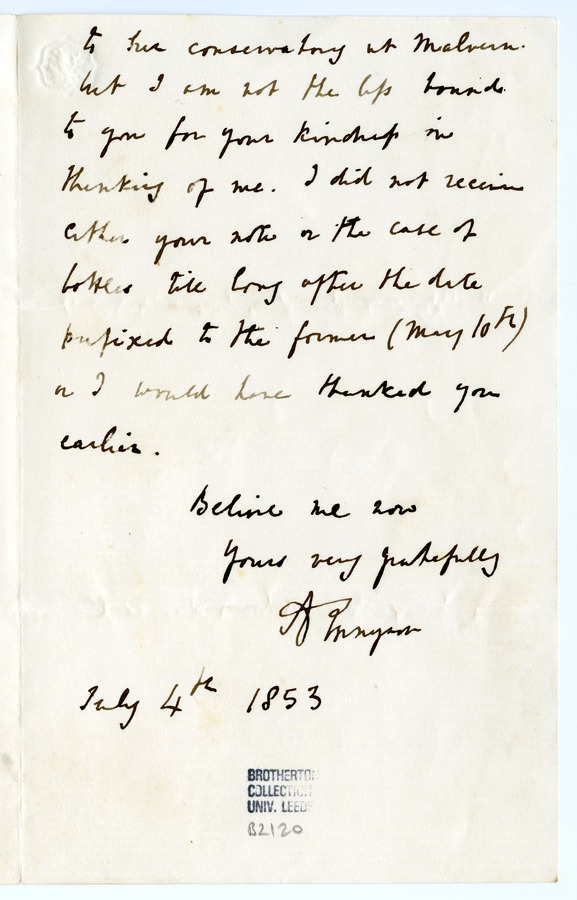 to her conservatory at Malvern.
but I am not the less bound
to you for your kindness in
thinking of me. I did not receive
either your note or the case of
bottles till long after the date
prefixed to the former (May 10th)
or I would have thanked you
earlier.
Believe me now
Yours very gratefully
A Tennyson
July 4th 1853
BROTHERTON
COLLECTION
UNIV. LEEDS
B2120